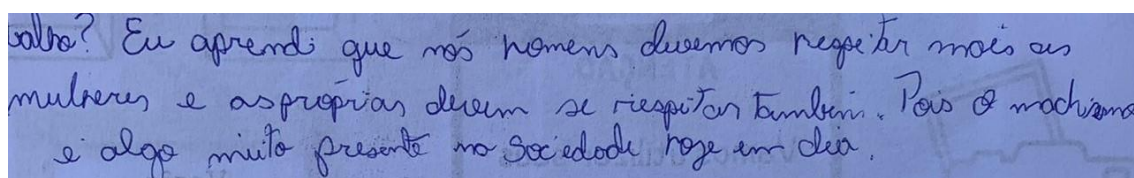 balho? Eu aprendi que nós homens devemos respeitar mais as
mulheres e as próprias devem se respeitar também. Pois o machismo
é algo muito presente na sociedade hoje em dia.